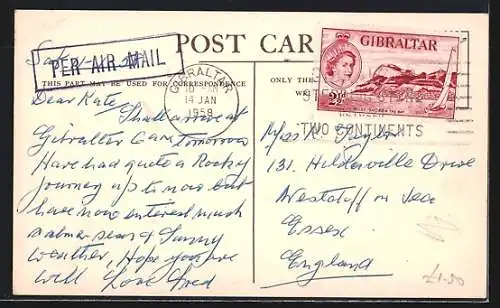 POST CAR
PER AIR MAIL
THIS PART MAY BE USED FOR CORRESPONDENCE
ONLY THE
GIBRALTAR
14 JAN
1959
GIBRALTAR
2½
TWO CONTINENTS
Dear Kate,
Shall arrive at
Gibraltar tomorrow
Have had quite a Rocky
journey up to now but
have now entered much
calmer seas & Sunny
weather, Hope you are
well Love Fred
Miss K.
131. Drive
on Sea
Essex
England
£1.50